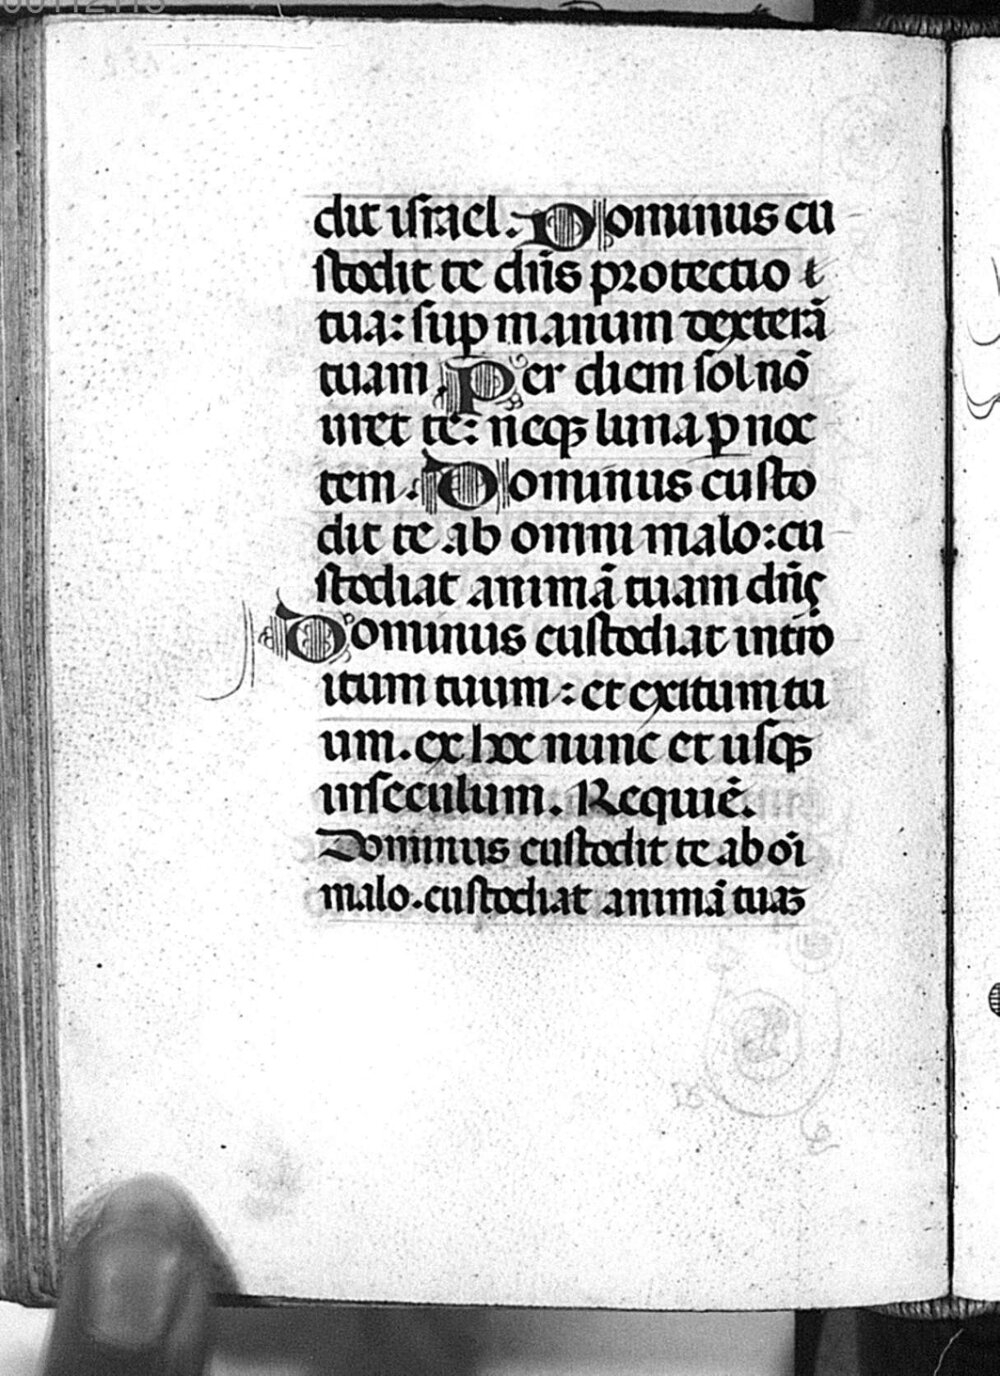 dit israel. Dominus cu
stodit te dn̄s protectio t
tua: sup manum dexterā
tuam. Per diem sol nō
uret te: neqꝫ luna p noc
tem. Dominus custo
dit te ab omni malo: cu
stodiat animā tuam dn̄s
Dominus custodiat intro
itum tuum: et exitum tu
um. ex hoc nunc et usqꝫ
in seculum. Requiē.
Dominus custodit te ab oī
malo. custodiat animā tuaꝫ